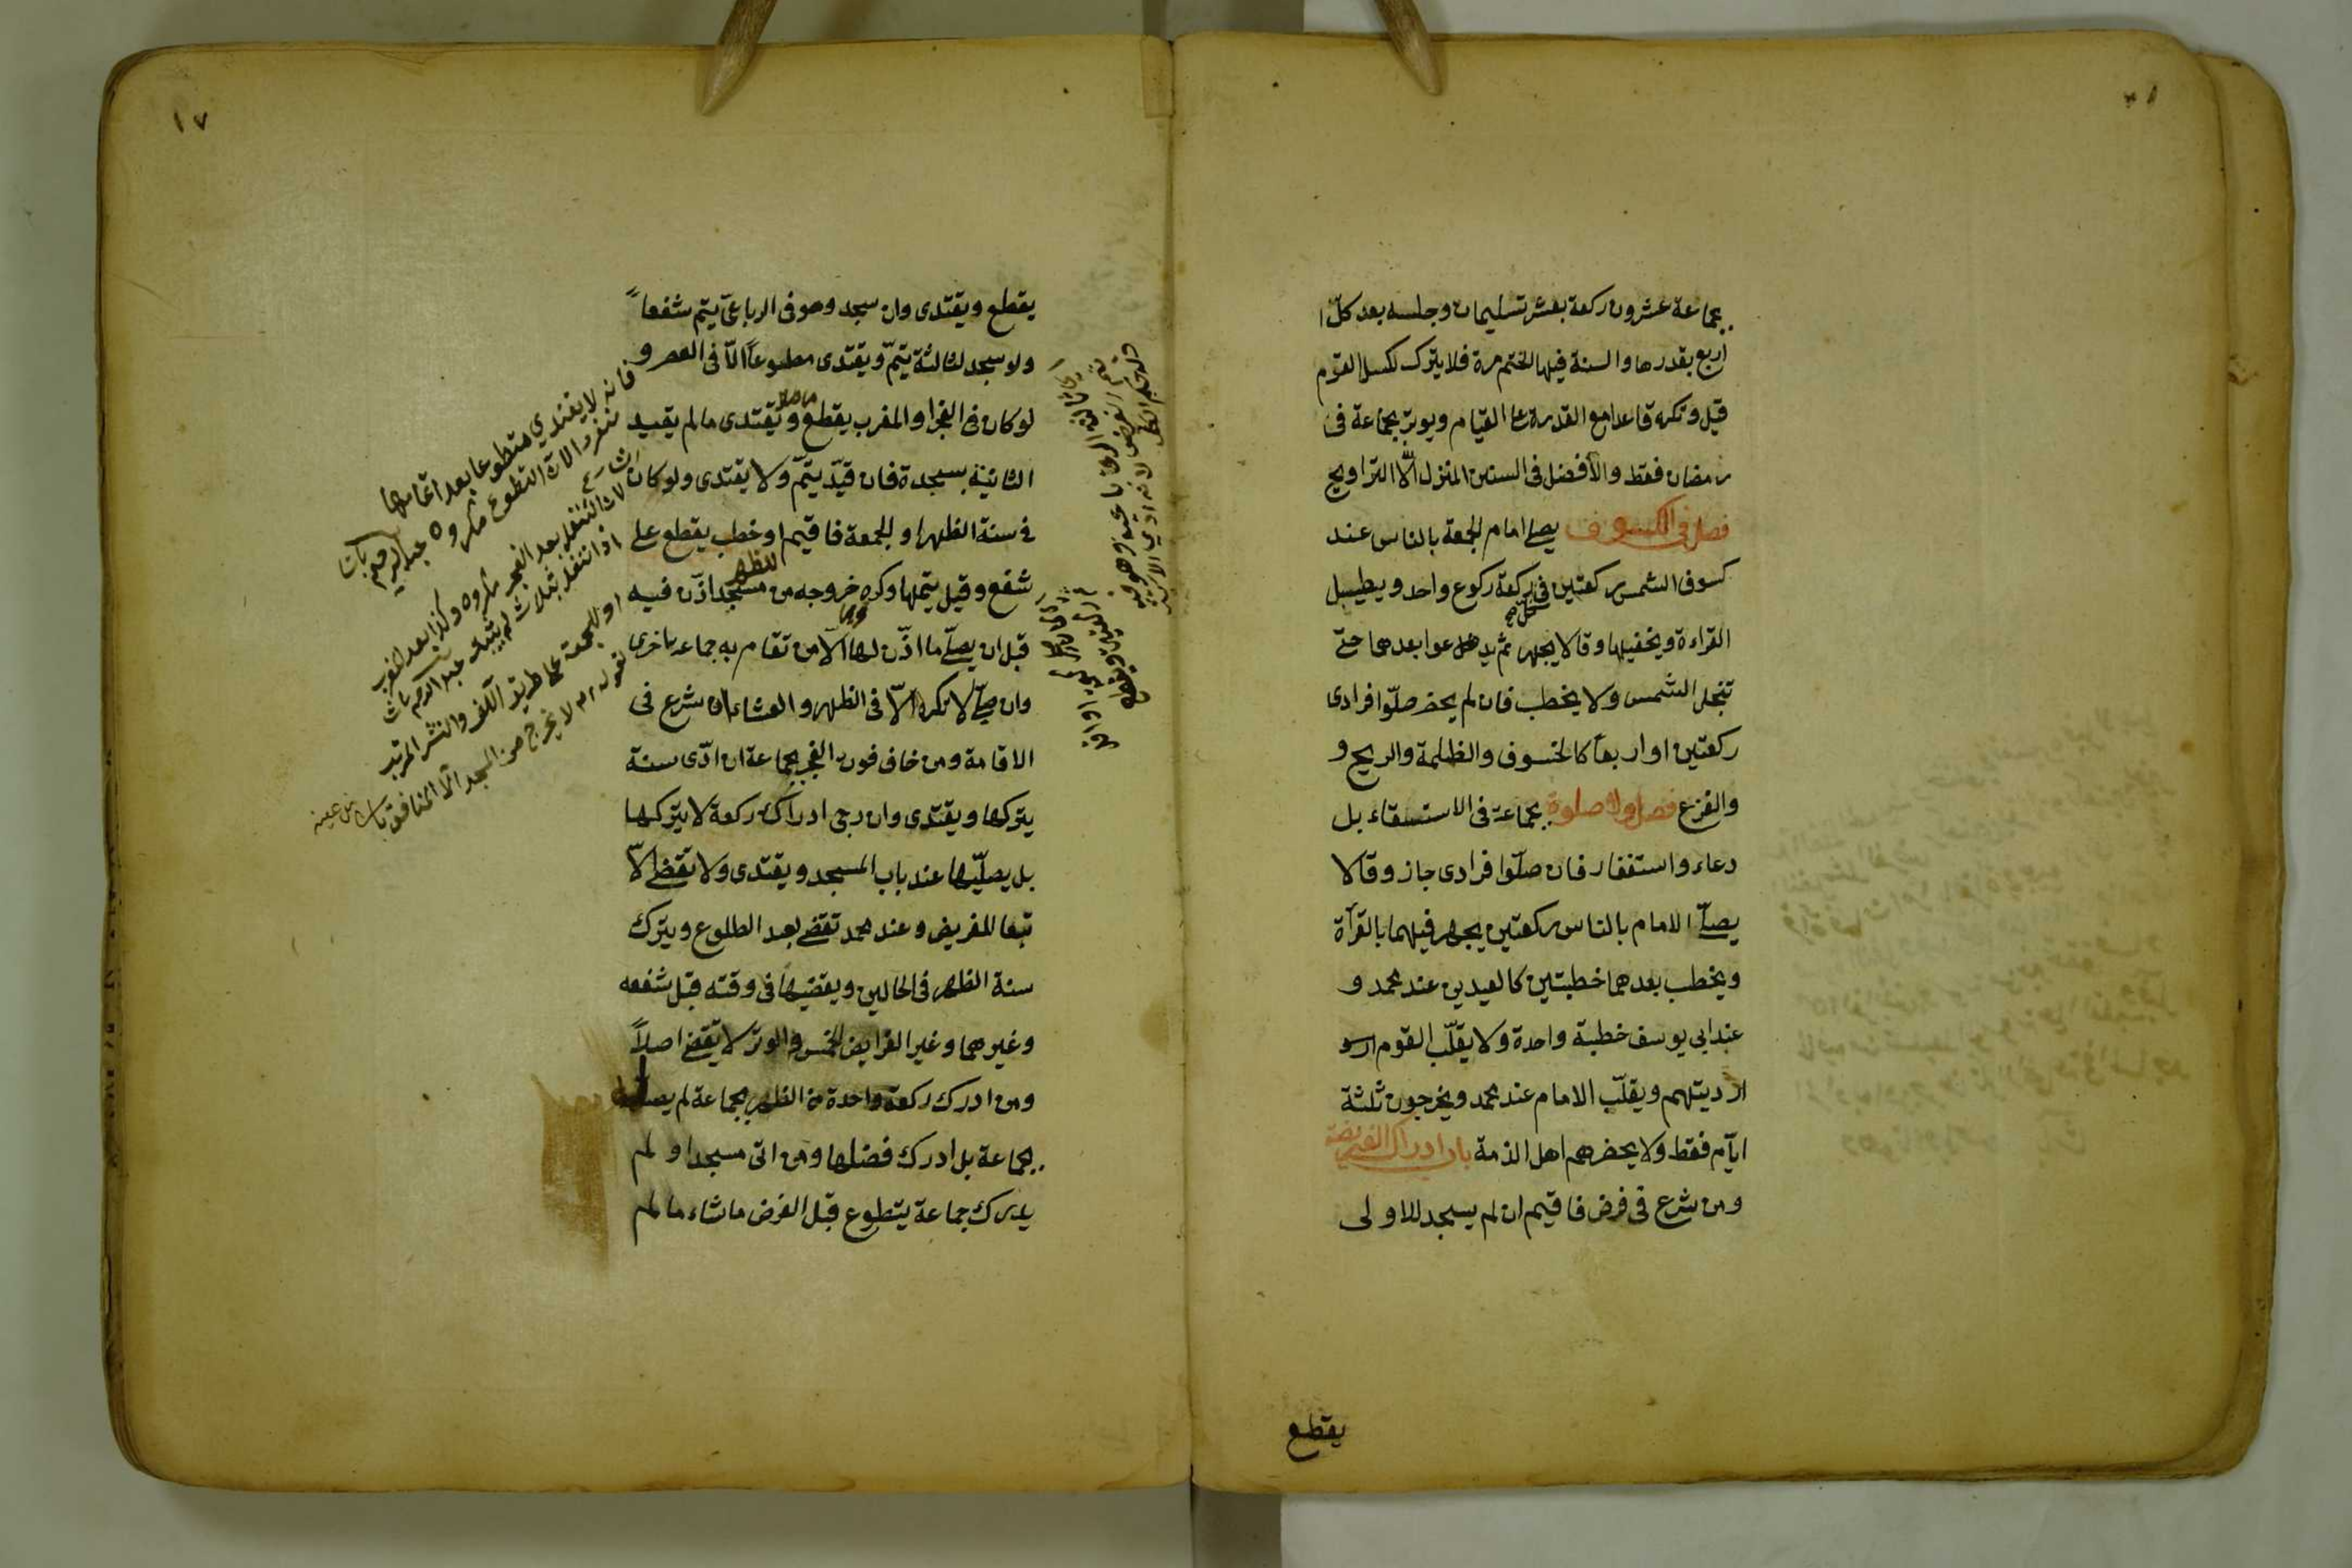 بجماعة عشرون ركعة بعشر تسليمات وجلسه بعد كلّ
اربع بقدرها والسنة فيها الختم مرة فلا يترك لكسل القوم
قيل وتكره قاعدا مع القدرة على القيام ويوتر بجماعة فى
رمضان فقط والأفضل فى السنن المنزل الّا التراويح
فصل فى الكسوف يصلى امام الجمعة بالناس عند
كسوف الشمس ركعتين فى كل ركعة ركوع واحد ويطيل
القراءة ويخفيها وقالا يجهر ثم يدعوا بعدهما حتّى
تنجلى الشمس ولا يخطب فان لم يحضر صلّوا فرادى
ركعتين او اربعا كالخسوف والظلمة والريح و
والفزع فصل ولا صلوة بجماعة فى الاستسقاء بل
دعاء واستغفار فان صلّوا فرادى جاز وقالا
يصلّى الامام بالناس ركعتين يجهر فيهما بالقرآة
ويخطب بعدهما خطبتين كالعيدين عند محمد و
عند ابى يوسف خطبة واحدة ولا يقلّب القوم
ارديتهم ويقلّب الامام عند محمد ويخرجون ثلثة
ايّام فقط ولا يحضرهم اهل الذمة باب ادراك الفريضة
ومن شرع فى فرض فاقيم ان لم يسجد للاولى
يقطع
١٧
يقطع ويقتدى وان سجد وهو فى الرباعىّ يتم شفعاً
ولو سجد لثالثة يتمّ ويقتدى متطوعاً الّا فى العصر و
لو كان فى الفجر او المغرب يقطع ويقتدى ما لم يقيد
الثانية بسجدة فان قيّد يتمّ ولا يقتدى ولو كان
فى سنة الظهر او الجمعة فاقيم او خطب يقطع على
شفع وقيل يتمها وكره خروجه من مسجد اذّن فيه
قبل ان يصلّى ما اذّن لها الّا من تقام به جماعة اخرى
وان صلّى لا يكره الّا فى الظهر والعشاء ان شرع فى
الاقامة ومن خاف فوت الفجر بجماعة ان ادّى سنة
يتركها ويقتدى وان رجى ادراك ركعة لا يتركها
بل يصلّيها عند باب المسجد ويقتدى ولا تقضى الّا
تبعا للفريض وعند محمد تقضى بعد الطلوع ويترك
سنة الظهر فى الحالين ويقضيها فى وقته قبل شفعه
وغيرهما وغير الفرايض الخمس والوتر لا يقضى اصلاً
ومن ادرك ركعة واحدة من الظهر بجماعة لم يصلّ
بجماعة بل ادرك فضلها ومن اتى مسجدا ولم
يدرك جماعة يتطوع قبل الفرض ما شاء ما لم
فانه لا يقتدي متطوعا بعد اتمامها
لان التنفل بعد الفجر مكروه وكذا بعد المغرب
او الجمعة على طريق اللف والنشر المرتب
لا يخرج من المسجد الا المنافق